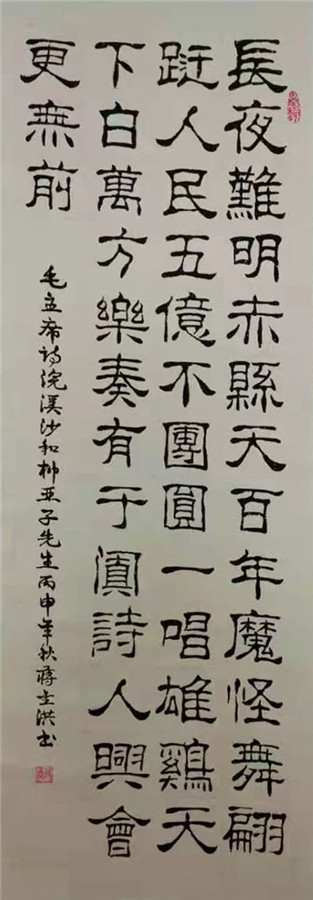 長夜難明赤縣天百年魔怪舞翩
跹人民五億不團圓一唱雄鷄天
下白萬方樂奏有于闐詩人興會
更無前
毛主席诗浣溪沙和柳亚子先生丙申年秋蒋洪书